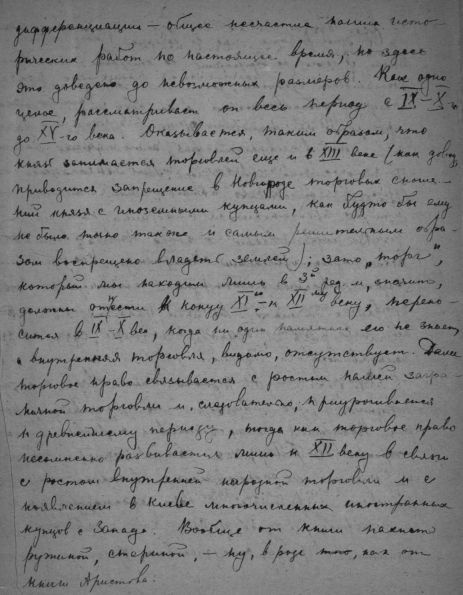 дифференциации — общее несчастие наших исто-
рических работ по настоящее время, но здесь
это доведено до невозможных размеров. Как одно
целое, рассматривает он весь период с IX–X-го
до XV-го века. Оказывается, таким образом, что
князь занимается торговлей еще и в XIII веке (как довод,
приводится запрещение в Новгороде торговых сноше-
ний князя с иноземными купцами, как будто бы ему
не было точно также и самым решительным обра-
зом воспрещено владеть землей); зато „торг“,
который мы находим лишь в 3й ред. и, значит,
должны отнести к концу XI-го – и XII му веку, перено-
сится в IX–X век, когда ни один памятник его не знает,
и внутренняя торговля, видимо, отсутствует. Далее
торговое право связывается с ростом нашей загра-
ничной торговли и, следовательно, приурочивается
к древнейшему периоду, тогда как торговое право
несомненно развивается лишь к XII веку в связи
с ростом внутренней народной торговли и с
появлением в Киеве многочисленных иностранных
купцов с Запада. Вообще от книги пахнет
рутиной, стариной, — ну, в роде того, как от
книги Аристова.